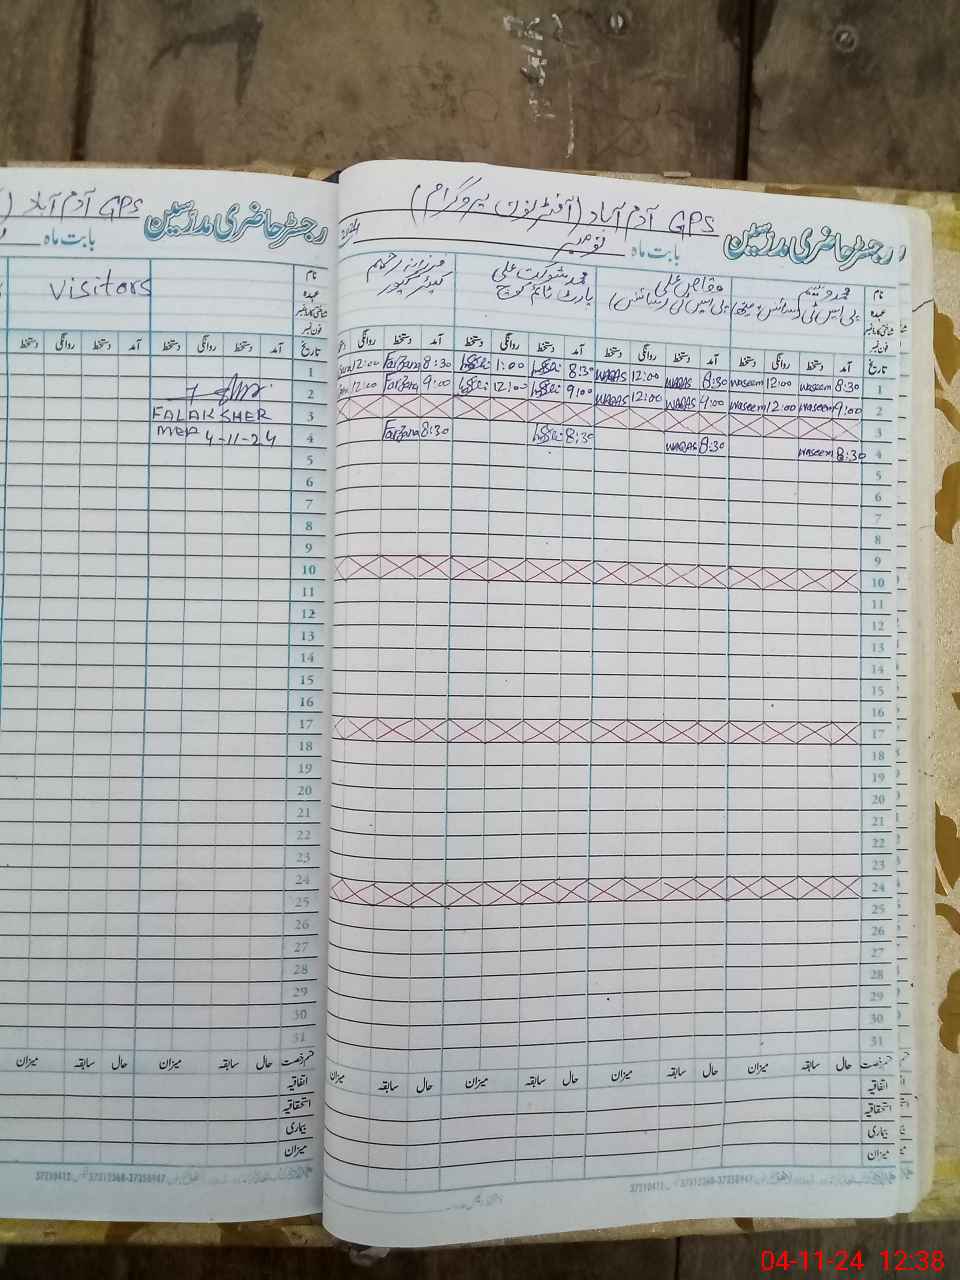 GPS آدم آباد (آفٹر نون پروگرام)
رجسٹر حاضری مدرسین
بابت ماہ نومبر
نام
محمد وسیم
وقاص علی
محمد شوکت علی
عہدہ
پارٹ ٹائم کوچ
فون نمبر
تاریخ آمد دستخط روانگی دستخط آمد دستخط روانگی دستخط آمد دستخط روانگی دستخط آمد دستخط روانگی
1 8:30 waseem 12:00 waseem 8:30 WAQAS 12:00 WAQAS 8:30 1:00 8:30 Farzana 12:00
2 9:00 waseem 12:00 waseem 9:00 WAQAS 12:00 WAQAS 9:00 12:00 9:00 Farzana 12:00
3
4 8:30 waseem 8:30 WAQAS 8:30 8:30 Farzana
5
6
7
8
9
10
11
12
13
14
15
16
17
18
19
20
21
22
23
24
25
26
27
28
29
30
31
حال سابقہ میزان حال سابقہ میزان حال سابقہ میزان حال سابقہ میزان
اتفاقیہ
استحقاقیہ
بیماری
میزان
GPS آدم آباد
رجسٹر حاضری مدرسین
بابت ماہ
نام
Visitors
عہدہ
فون نمبر
تاریخ آمد دستخط روانگی دستخط آمد دستخط روانگی دستخط
1
2
3 FALAK SHER
4 MEA 4-11-24
5
6
7
8
9
10
11
12
13
14
15
16
17
18
19
20
21
22
23
24
25
26
27
28
29
30
31
حال سابقہ میزان حال سابقہ میزان
اتفاقیہ
استحقاقیہ
بیماری
میزان
04-11-24 12:38